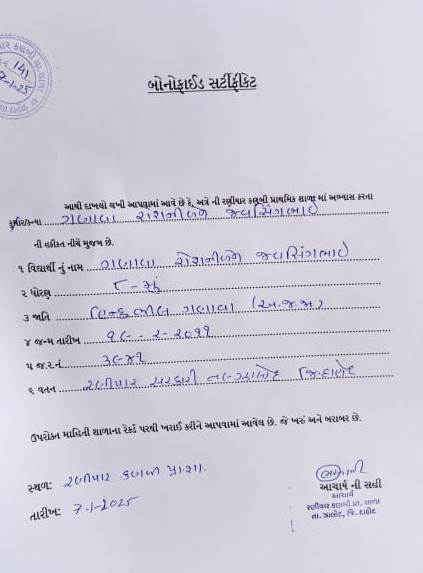 141
7-1-25
બોનોફાઈડ સર્ટીફીકેટ
આથી દાખલો લખી આપવામાં આવે છે કે, અત્રે ની રણીયાર કણબી પ્રાથમિક શાળા માં અભ્યાસ કરતા
કુમાર/કન્યા ગણાવા રોશનીબેન જવસિંગભાઈ
ની હકીકત નીચે મુજબ છે.
૧ વિદ્યાર્થી નું નામ ગણાવા રોશનીબેન જવસિંગભાઈ
૨ ધોરણ ૮-મું
૩ જાતિ હિન્દુ ભીલ ગણાવા (અ.જ.જા)
૪ જન્મ તારીખ ૧૯-૨-૨૦૧૧
૫ જ.ર.નં ૩૯૪૧
૬ વતન રણીયાર સરકારી તા-ઝાલોદ જિ.દાહોદ
ઉપરોક્ત માહિતી શાળાના રેકર્ડ પરથી ખરાઈ કરીને આપવામાં આવેલ છે. જે ખરું અને બરાબર છે.
સ્થળ: રણીયાર કણબી પ્રા.શા.
તારીખ: 7-1-2025
આચાર્ય ની સહી
આચાર્ય
રણીયાર કણબી પ્રા. શાળા
તા. ઝાલોદ, જિ. દાહોદ